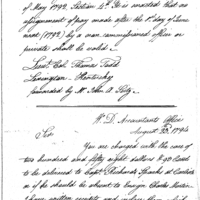 of May 1792. Section 4th. It is enacted that no
assignment of pay made after the 1st day of June
next (1792) by a non commissioned officer or
private shall be valid.
Lieut Col. Thomas Todd
Lexington - Kentucky
forwarded by Mr. John A.
W. D. Accountants Office
August 30th 1794
Sir
You are charged with the case of
two hundred and fifty eight dollars & 90 Cents
to be delivered to Capt. Richard Sparks at
or if he should be absent to Ensign Charles